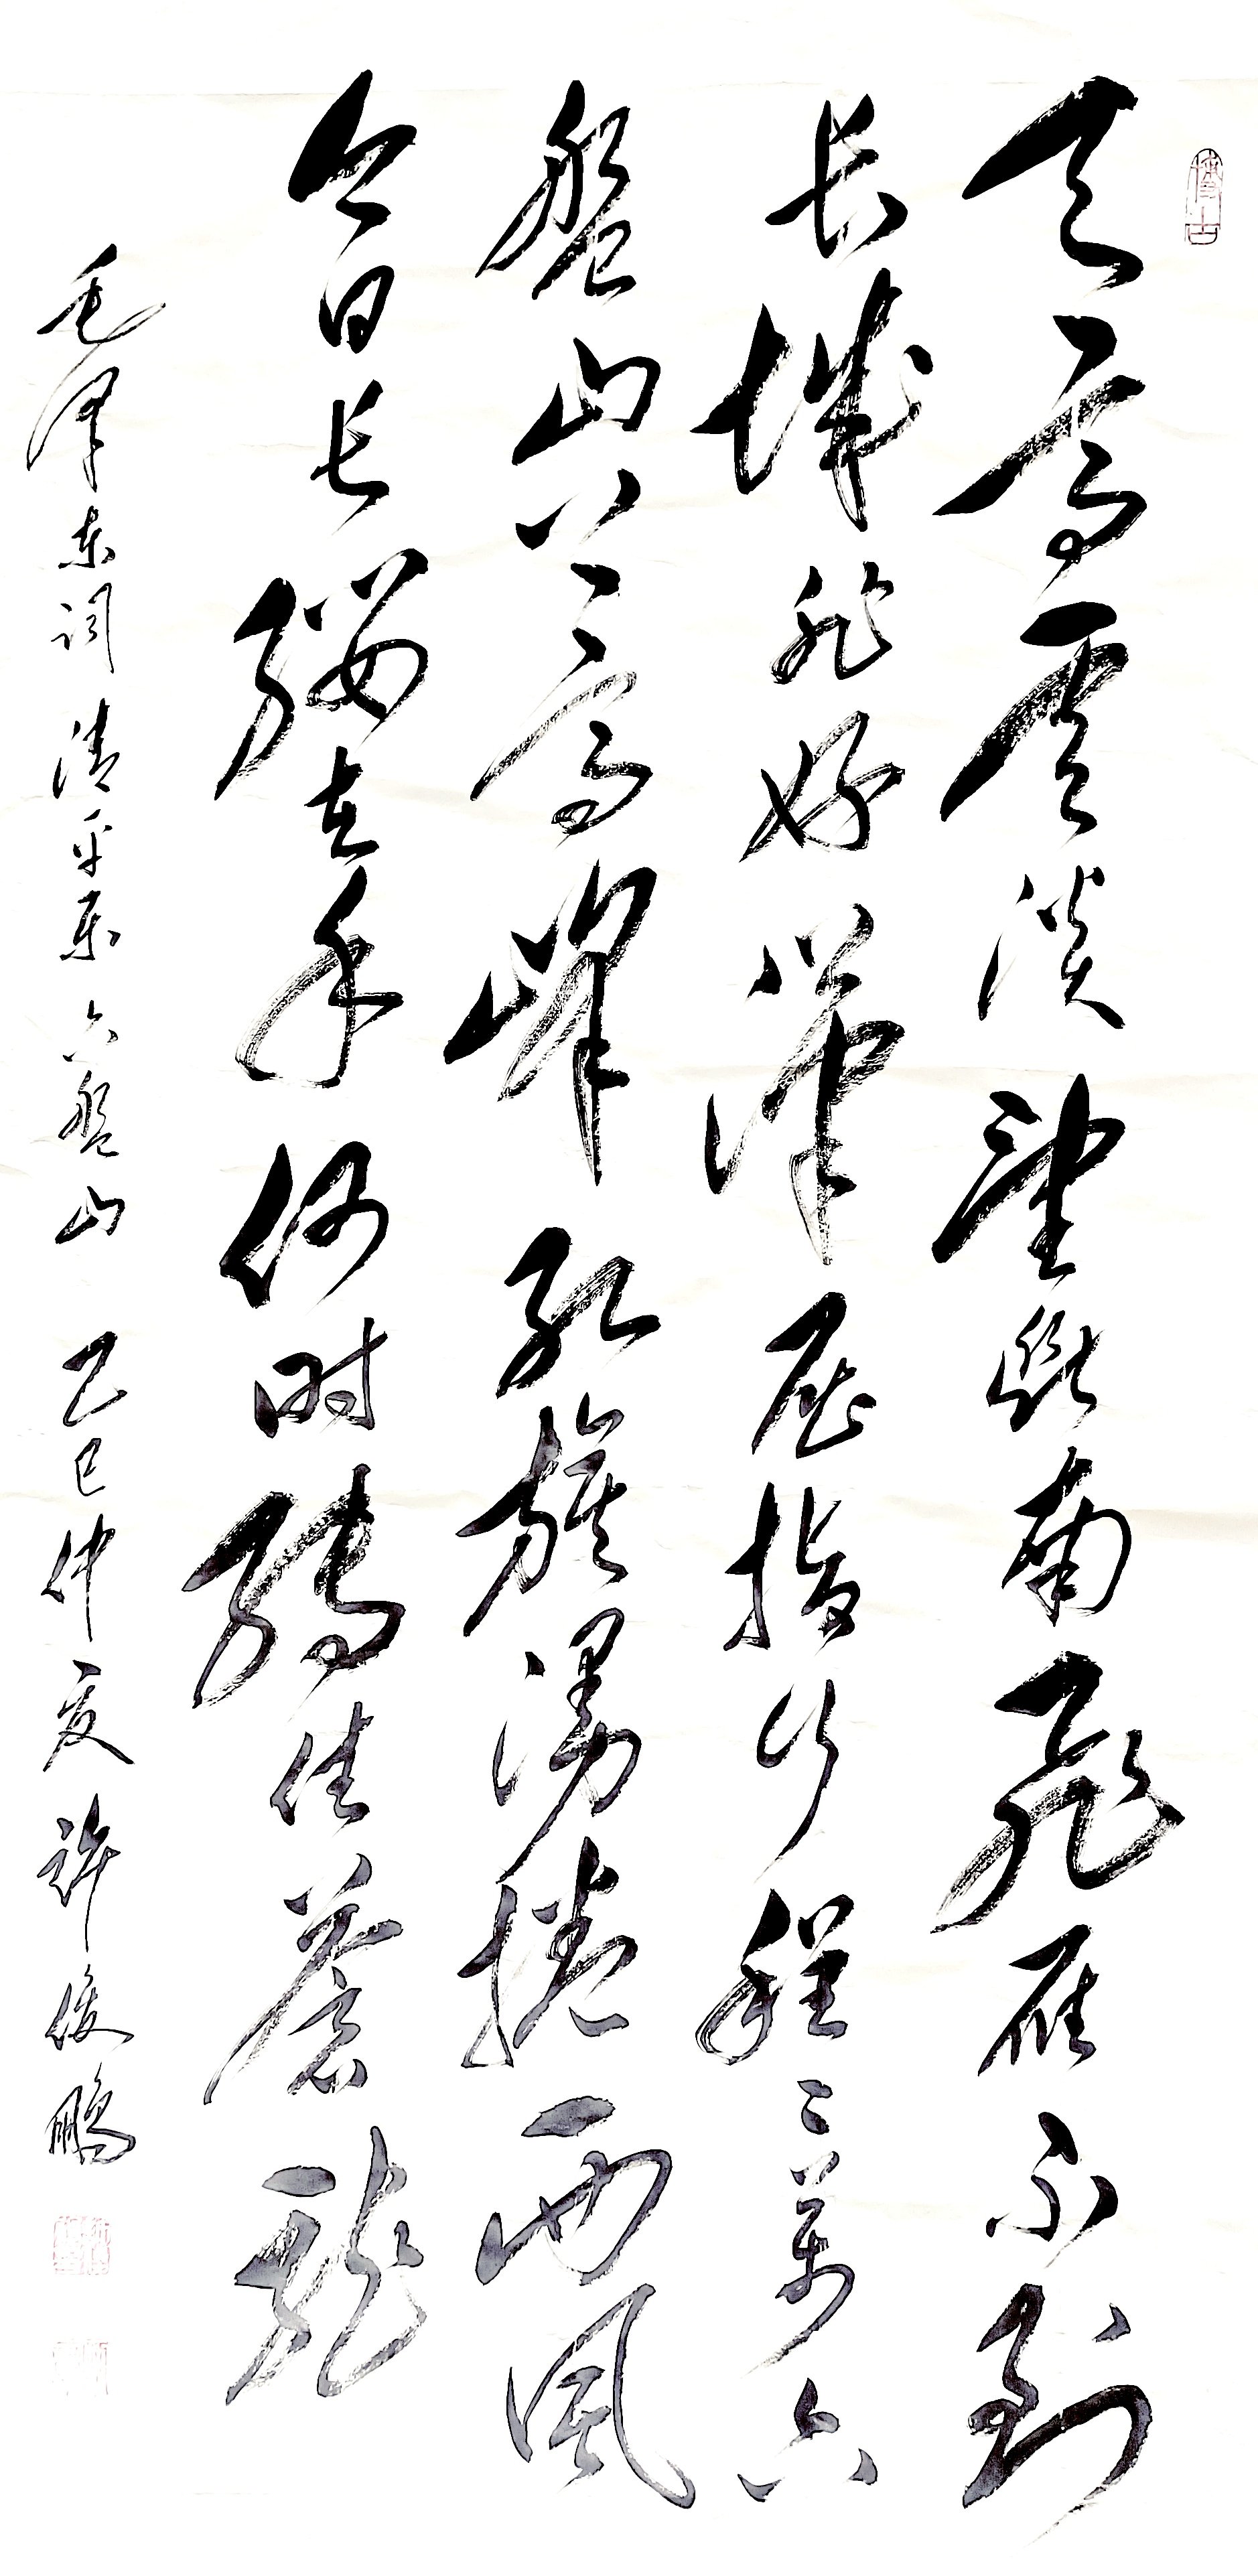 博古
天高雲淡望断南飛雁不到
长城非好漢屈指行程二萬六
盤山上高峰红旗漫捲西風
今日长缨在手何时缚住蒼龍
毛泽东词清平乐六盤山 乙巳仲夏 许俊鹏